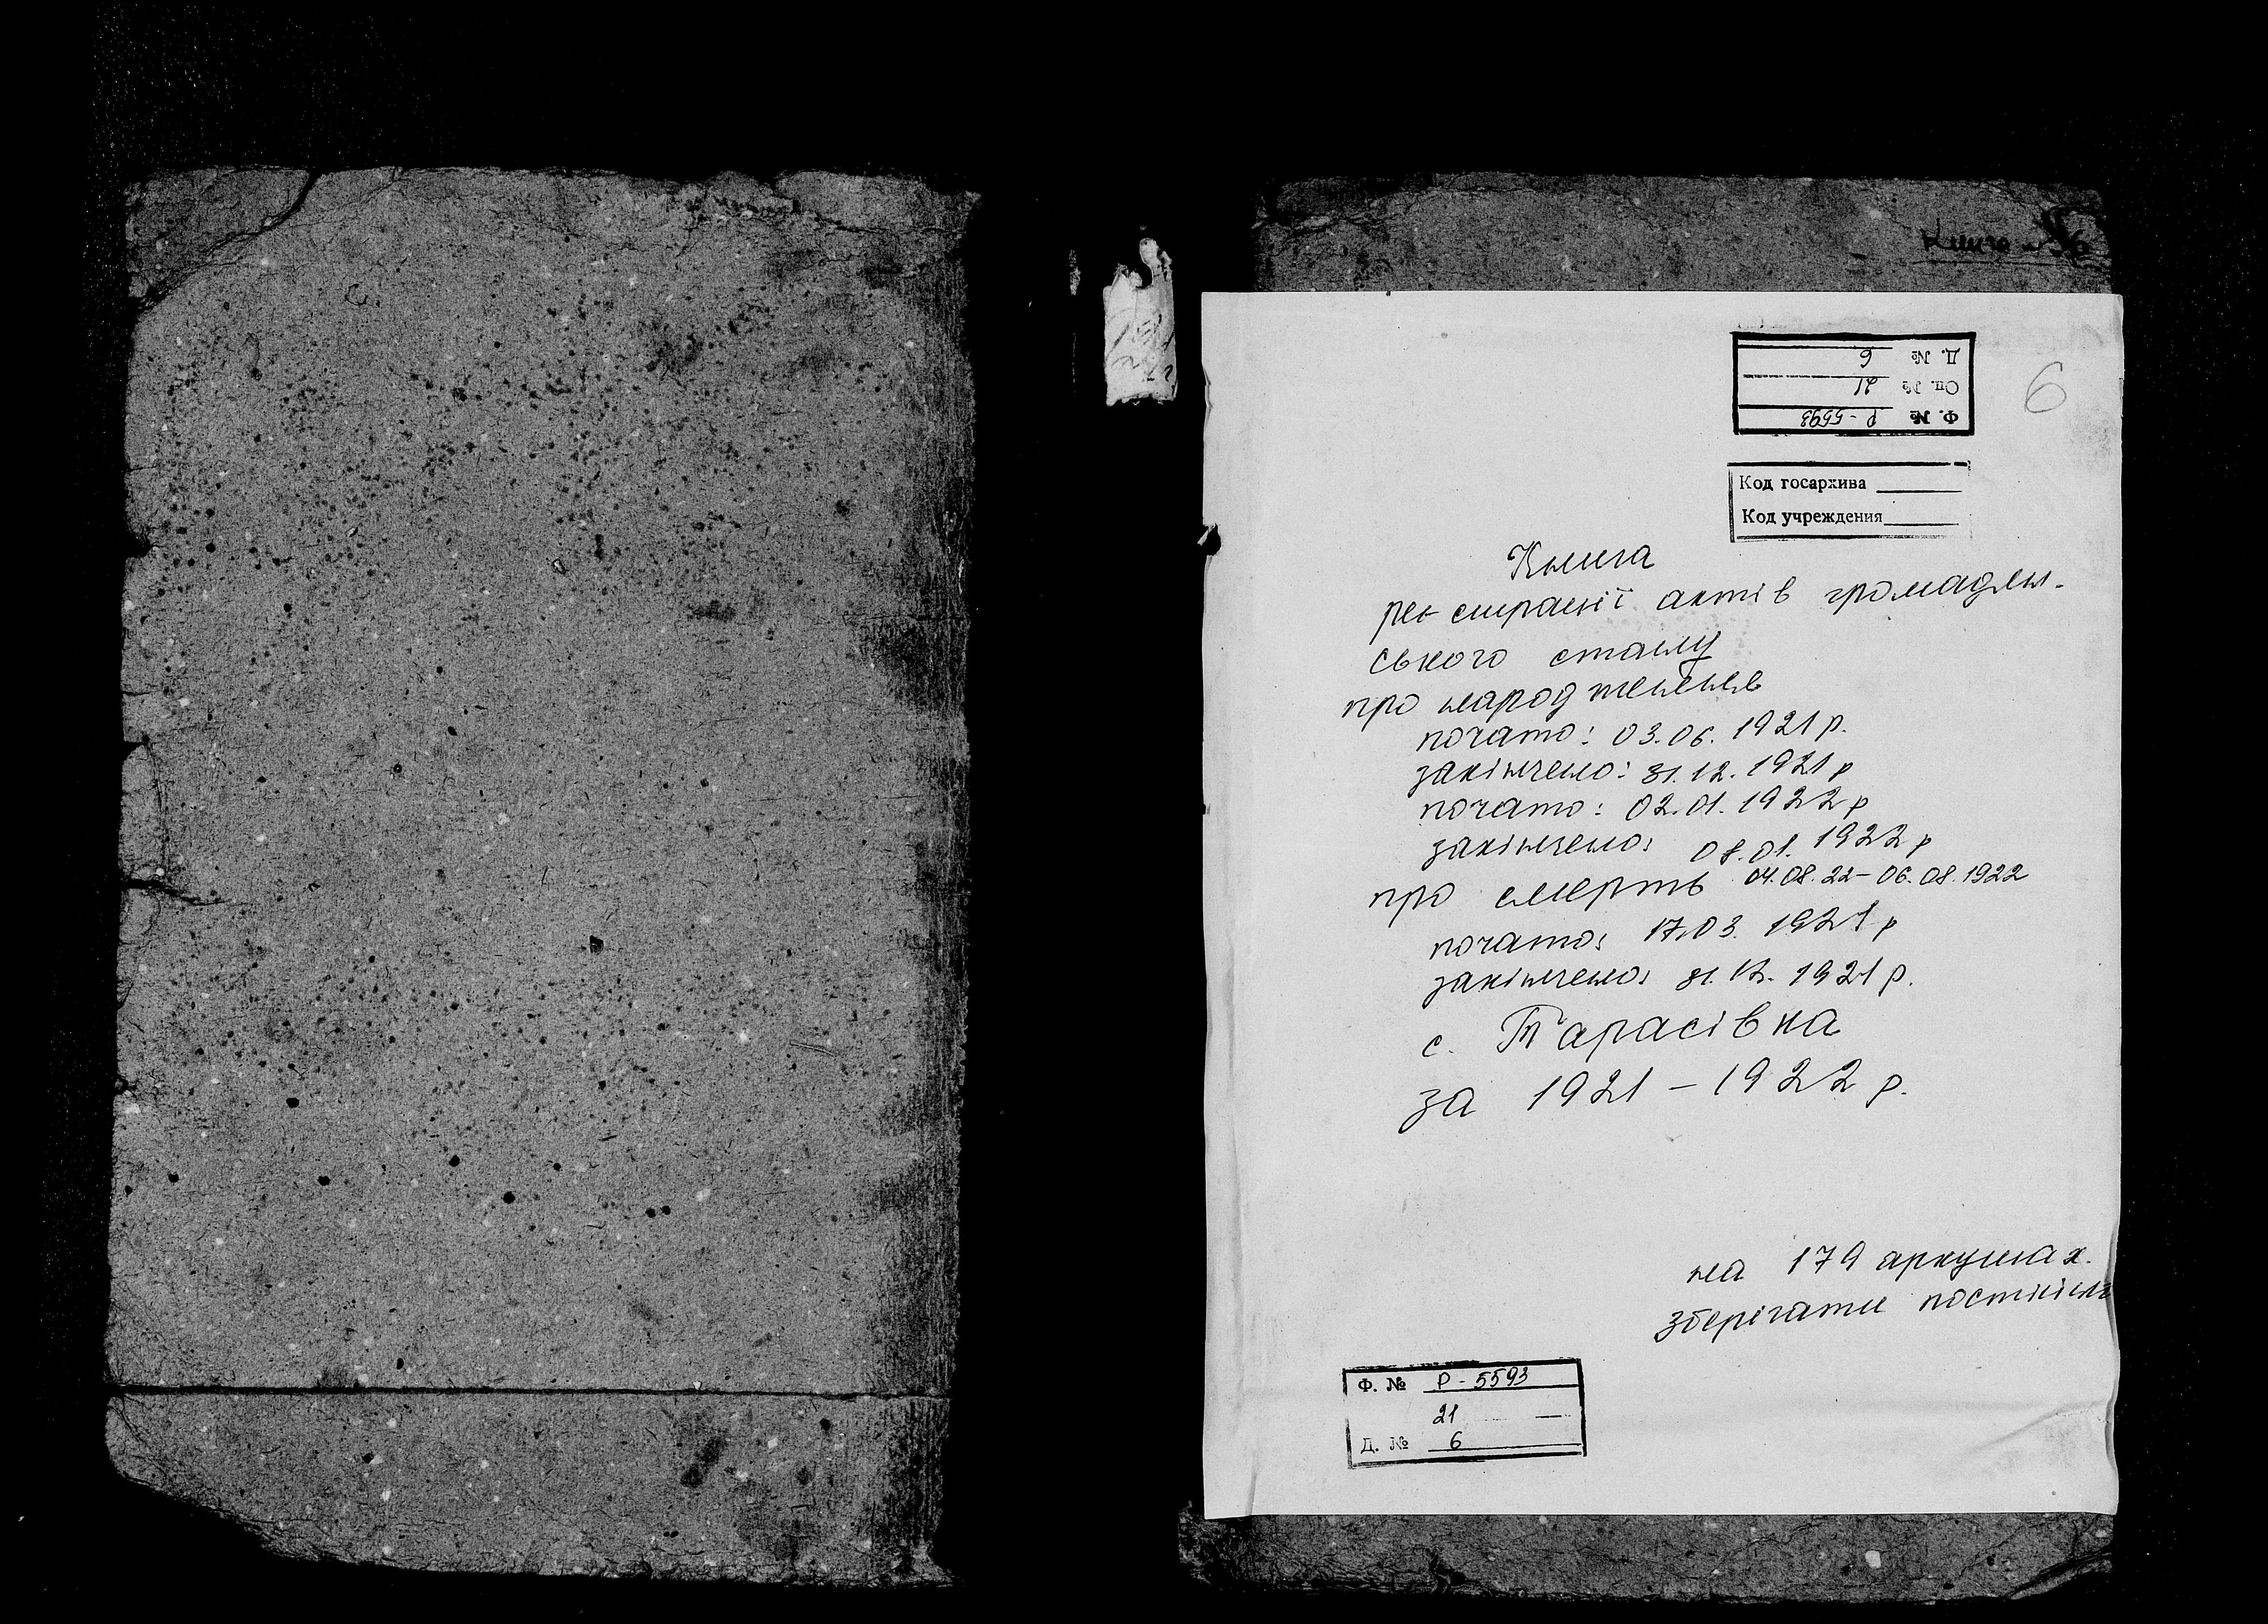 Книга №
Д. № 6
Оп. № 21
Ф. № Р-5593
6
Код госархива
Код учреждения
Книга
реєстрації актів громадян-
ського стану
про народження
почато: 03.06.1921 р.
закінчено: 31.12.1921 р
почато: 02.01.1922 р
закінчено: 08.01.1922 р
04.08.22 – 06.08.1922
про смерть
почато: 17.03.1921 р
закінчено: 31.12.1921 р.
с. Тарасівка
за 1921 – 1922 р.
на 179 аркушах.
зберігати постійно
Ф. № Р-5593
21
Д. № 6